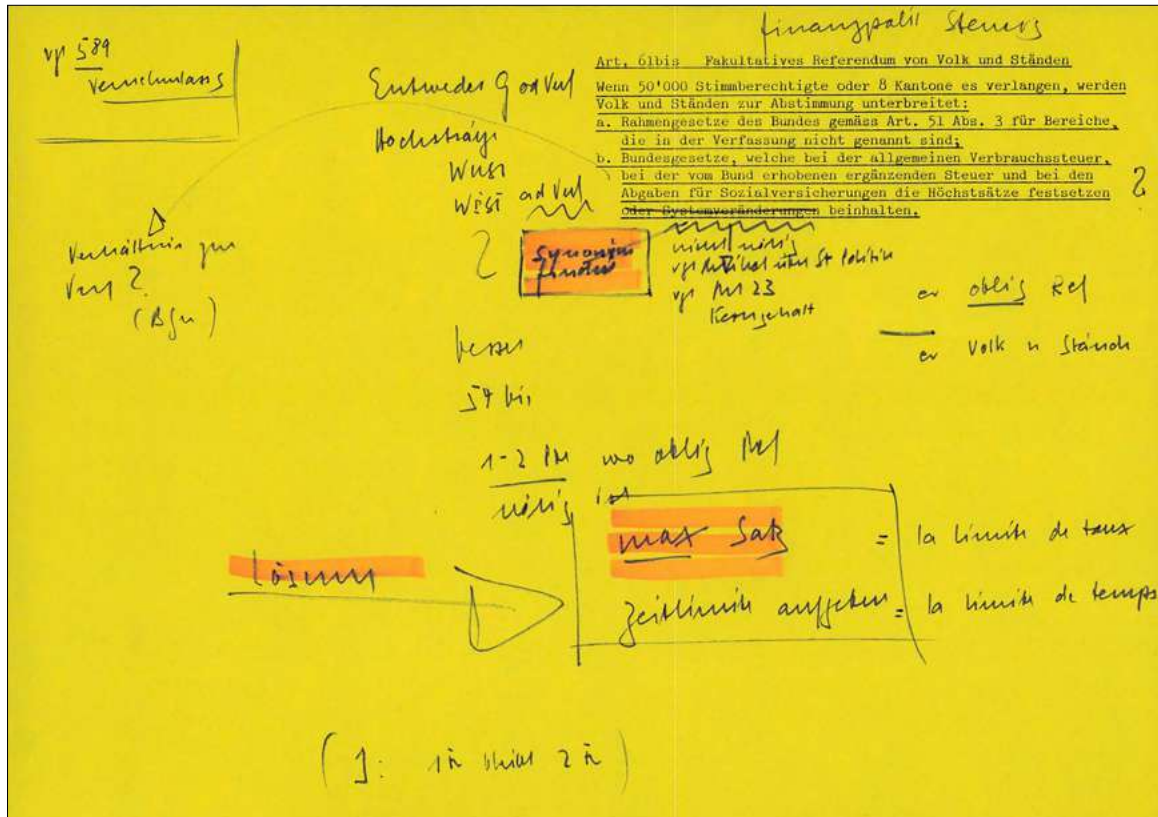 vgl 589
Vernehmlassg
Steuerg
Art. 61bis Fakultatives Referendum von Volk und Ständen
Wenn 50'000 Stimmberechtigte oder 8 Kantone es verlangen, werden
Volk und Ständen zur Abstimmung unterbreitet:
a. Rahmengesetze des Bundes gemäss Art. 51 Abs. 3 für Bereiche,
die in der Verfassung nicht genannt sind;
b. Bundesgesetze, welche bei der allgemeinen Verbrauchssteuer,
bei der vom Bund erhobenen ergänzenden Steuer und bei den
Abgaben für Sozialversicherungen die Höchstsätze festsetzen
oder Systemveränderungen beinhalten.
?
Entweder G od Verf
WUST
od Verf
Synonym
finden
nicht nötig
vgl Artikel über St Politik
vgl Art 23
Kerngehalt
Verhältnis zur
Verf ?
oblig Ref
Volk u Stände
besser
54 bis
1-2 wo oblig Ref
nötig ist
max Satz = la limite de taux
Lösung
Zeitlimite aufgeben = la limite de temps